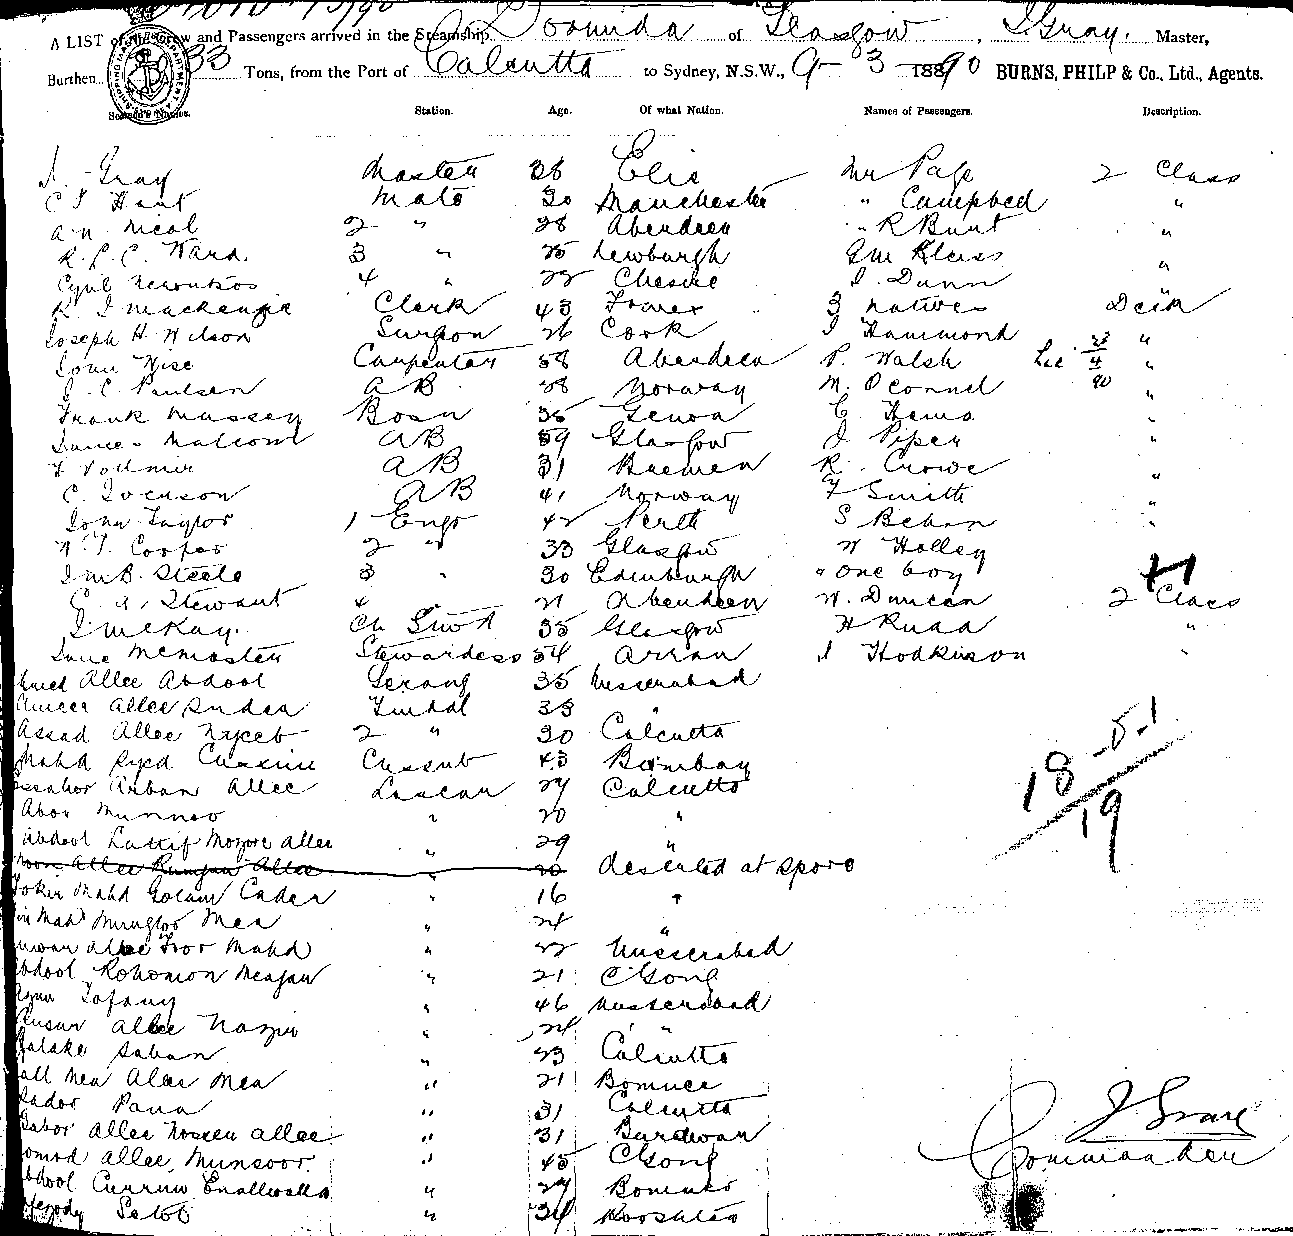 A LIST of the Crew and Passengers arrived in the Steamship Dorunda of Glasgow, J. Gray. Master,
Burthen 33 Tons, from the Port of Calcutta to Sydney, N.S.W., 9 - 3 - 1890 BURNS, PHILP & Co., Ltd., Agents.
Seamen's Names. Station. Age. Of what Nation. Names of Passengers. Description.
J. Gray Master 38 Elie Mr Page 2 Class
C F Hunt Mate 30 Manchester " Campbell "
A. N. Nicol 2 " 28 Aberdeen " R Burt "
R. P. C. Ward. 3 " 25 Newburgh "
Cyril 4 " 22 J. Dunn
K. J Mackenzie Clerk 43 3 natives Deck
Joseph H. Wilson Surgeon 26 Cook J Hammond "
John Wise Carpenter 58 Aberdeen P. Walsh 23/4/90 "
J. C. Paulsen AB 28 Norway M. O'Connel "
Frank Massey Bosn 35 Genoa C. Hems "
James Malcom AB 59 Glasgow J Piper "
F Vollmer AB 31 Bremen R. Crowe "
C. AB 41 Norway F Smith "
John Taylor 1 Engr 42 Perth S Behan "
W. T. Cooper 2 " 33 Glasgow W Holley
J McB. Steele 3 " 30 Edinburgh " One boy
C. A. Stewart 4 21 Aberdeen W. Duncan 2 Class
J McKay. Ch Stwd 35 Glasgow H Rudd "
Jane McMaster Stewardess 54 Arran J Hodkinson "
Allee Abdool Serang 35 Nusserabad
Ameer Allee Tindal 38 "
Assad Allee 2 " 30 Calcutta
Mahd Cussub 43 Bombay
Allee Lascar 27 Calcutta
Abou Munnoo " 20 "
Abdool Luttif Mozore Allee " 29 "
Noor Allee Rumjan Allee " 20 deserted at Spore
Mahd Golam Cader " 16 "
Mea " 24 "
Allee Noor Mahd " 22 Nusserabad
Abdool Rohomon Meajan " 21 C'Gong
Tofany " 46 Nusserabad
Allee Nazir " 24 "
Saban " 23 Calcutta
Mea Allee Mea " 21
Pana " 31 Calcutta
Allee Hossen Allee " 31 Burdwan
Allee Munsoor. " 45 C'Gong
Abdool Currim " 27
" 34
18-5-1
19
J Gray
Commander